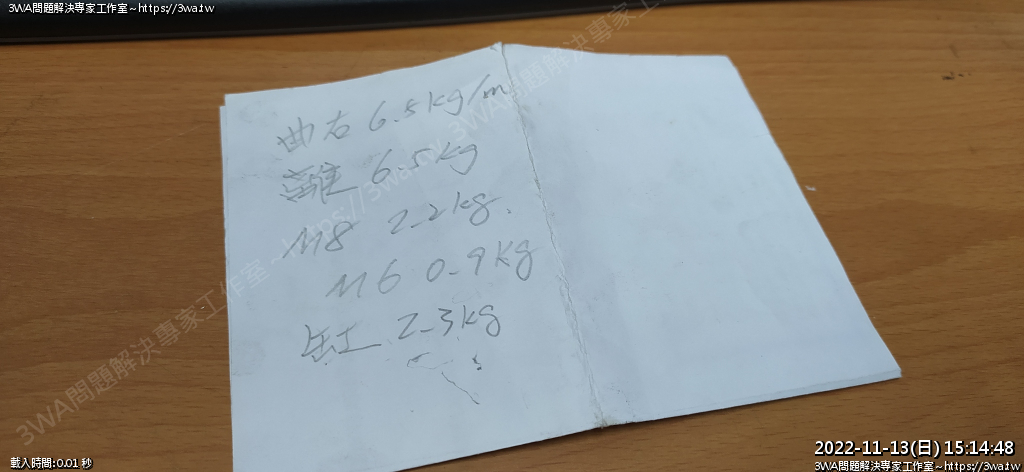 3WA問題解決專家工作室~https://3wa.tw
曲右 6.5kg/m
離 6.5kg
M8 2.2kg.
M6 0.9kg
缸 2.3kg
3WA問題解決專家工作室~https://3wa.tw
載入時間:0.01 秒
2022-11-13(日) 15:14:48
3WA問題解決專家工作室~https://3wa.tw